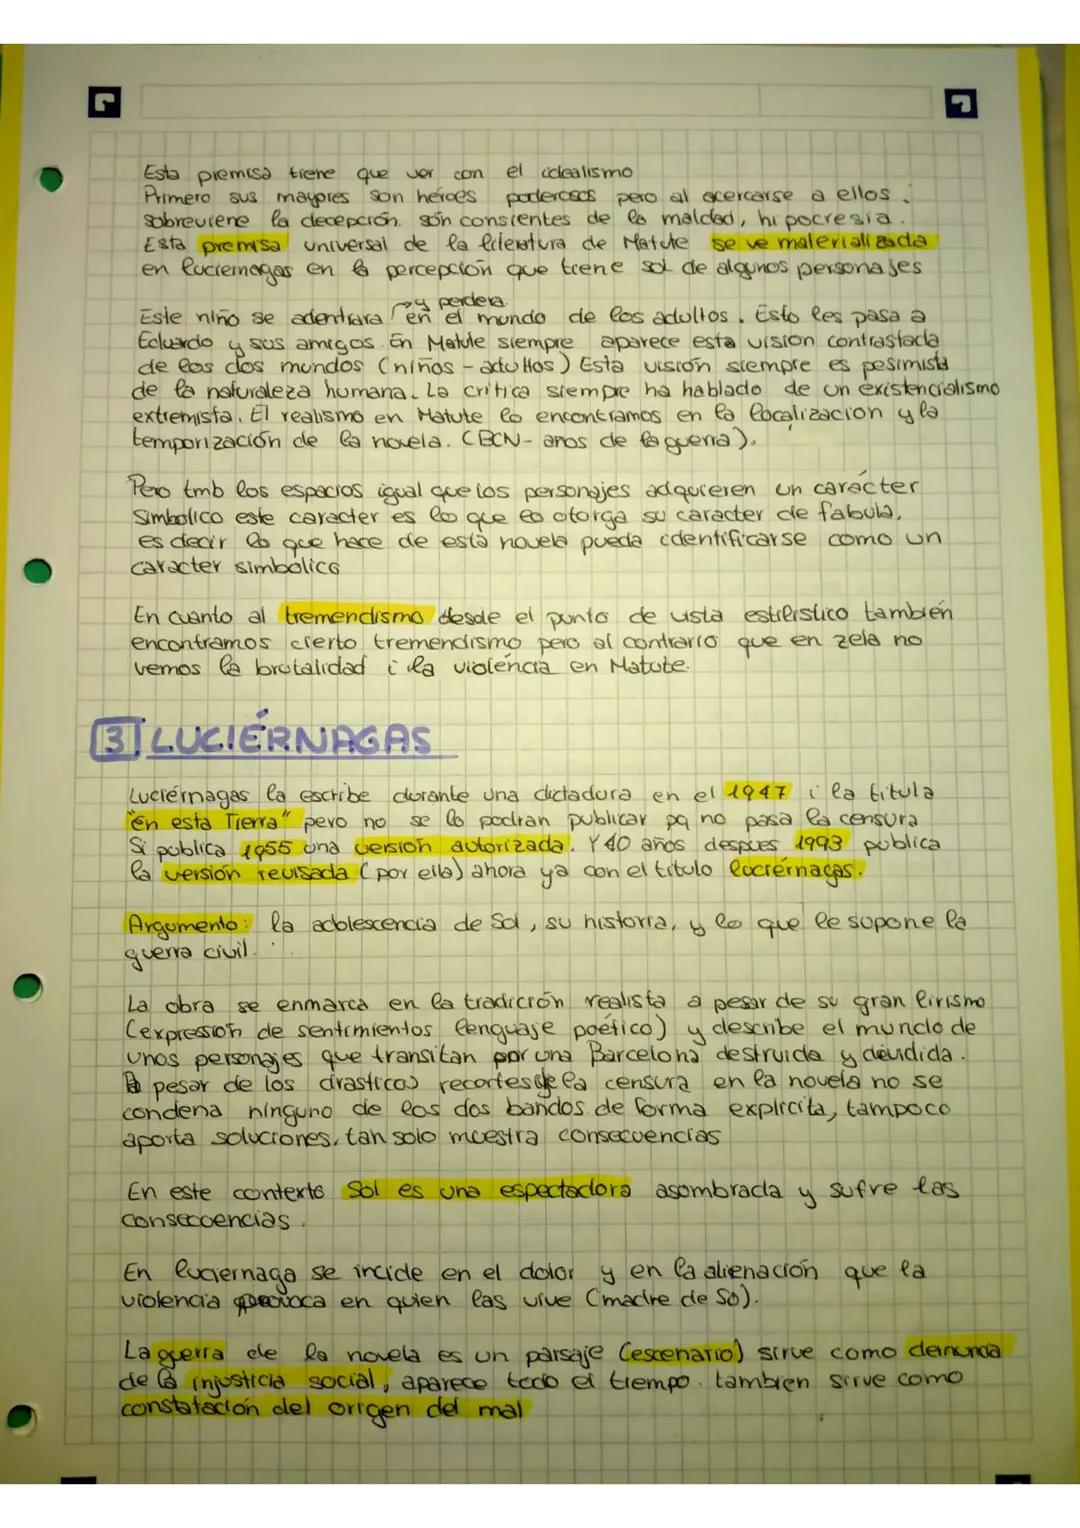 Esta premisa tiene que ver con el idealismo
Primero sus mayores son héroes poderosos pero al acercarse a ellos
sobreviene la decepción. són consientes de la maldad, hipocresia.
Esta premisa universal de la literatura de Matute se ve materializada
en luciernagas en la percepción que tiene sol de algunos personajes
y perdera
Este niño se adentrara en el mundo de los adultos. Esto les pasa a
Eduardo y sus amigos. En Matute siempre aparece esta visión contrastada
de los dos mundos (niños - adultos) Esta visión siempre es pesimista
de la naturaleza humana. La critica siempre ha hablado de un existencialismo
extremista. El realismo en Matute lo encontramos en la localizacion y la
temporización de la novela. (BCN - años de la guerra).
Pero tmb los espacios igual que los personajes adquieren un carácter
simbolico este caracter es lo que lo otorga su caracter de fabula,
es decir lo que hace de esta novela pueda identificarse como un
caracter simbólico
En cuanto al tremendismo desde el punto de vista estilistico también
encontramos cierto tremendismo pero al contrario que en zela no
vemos la brutalidad i la violéncia en Matute.
3 LUCIÉRNAGAS
Luciérnagas la escribe durante una dictadura en el 1947 i la titula
"en esta Tierra" pero no se lo podran publicar pq no pasa la censura
Si publica 1955 una versión autorizada. Y 40 años despues 1993 publica
la versión revisada (por ella) ahora ya con el titulo luciérnagas.
Argumento: la adolescencia de Sol, su historia, y lo que le supone la
guerra civil.
La obra se enmarca en la tradición realista a pesar de su gran lirismo
(expresión de sentimientos lenguaje poético) y describe el mundo de
unos personajes que transitan por una Barcelona destruida y dividida.
A pesar de los drasticos recortes de la censura en la novela no se
condena ninguno de los dos bandos de forma explicita, tampoco
aporta soluciones, tan solo muestra consecuencias
En este contexto Sol es una espectadora asombrada y sufre las
consecuencias.
En luciernaga se incide en el dolor y en la alienación que la
violencia provoca en quien las vive (madre de So).
La guerra de la novela es un paisaje (escenario) sirve como denuncia
de la injusticia social, aparece todo el tiempo. tambien sirve como
constatación del origen del mal